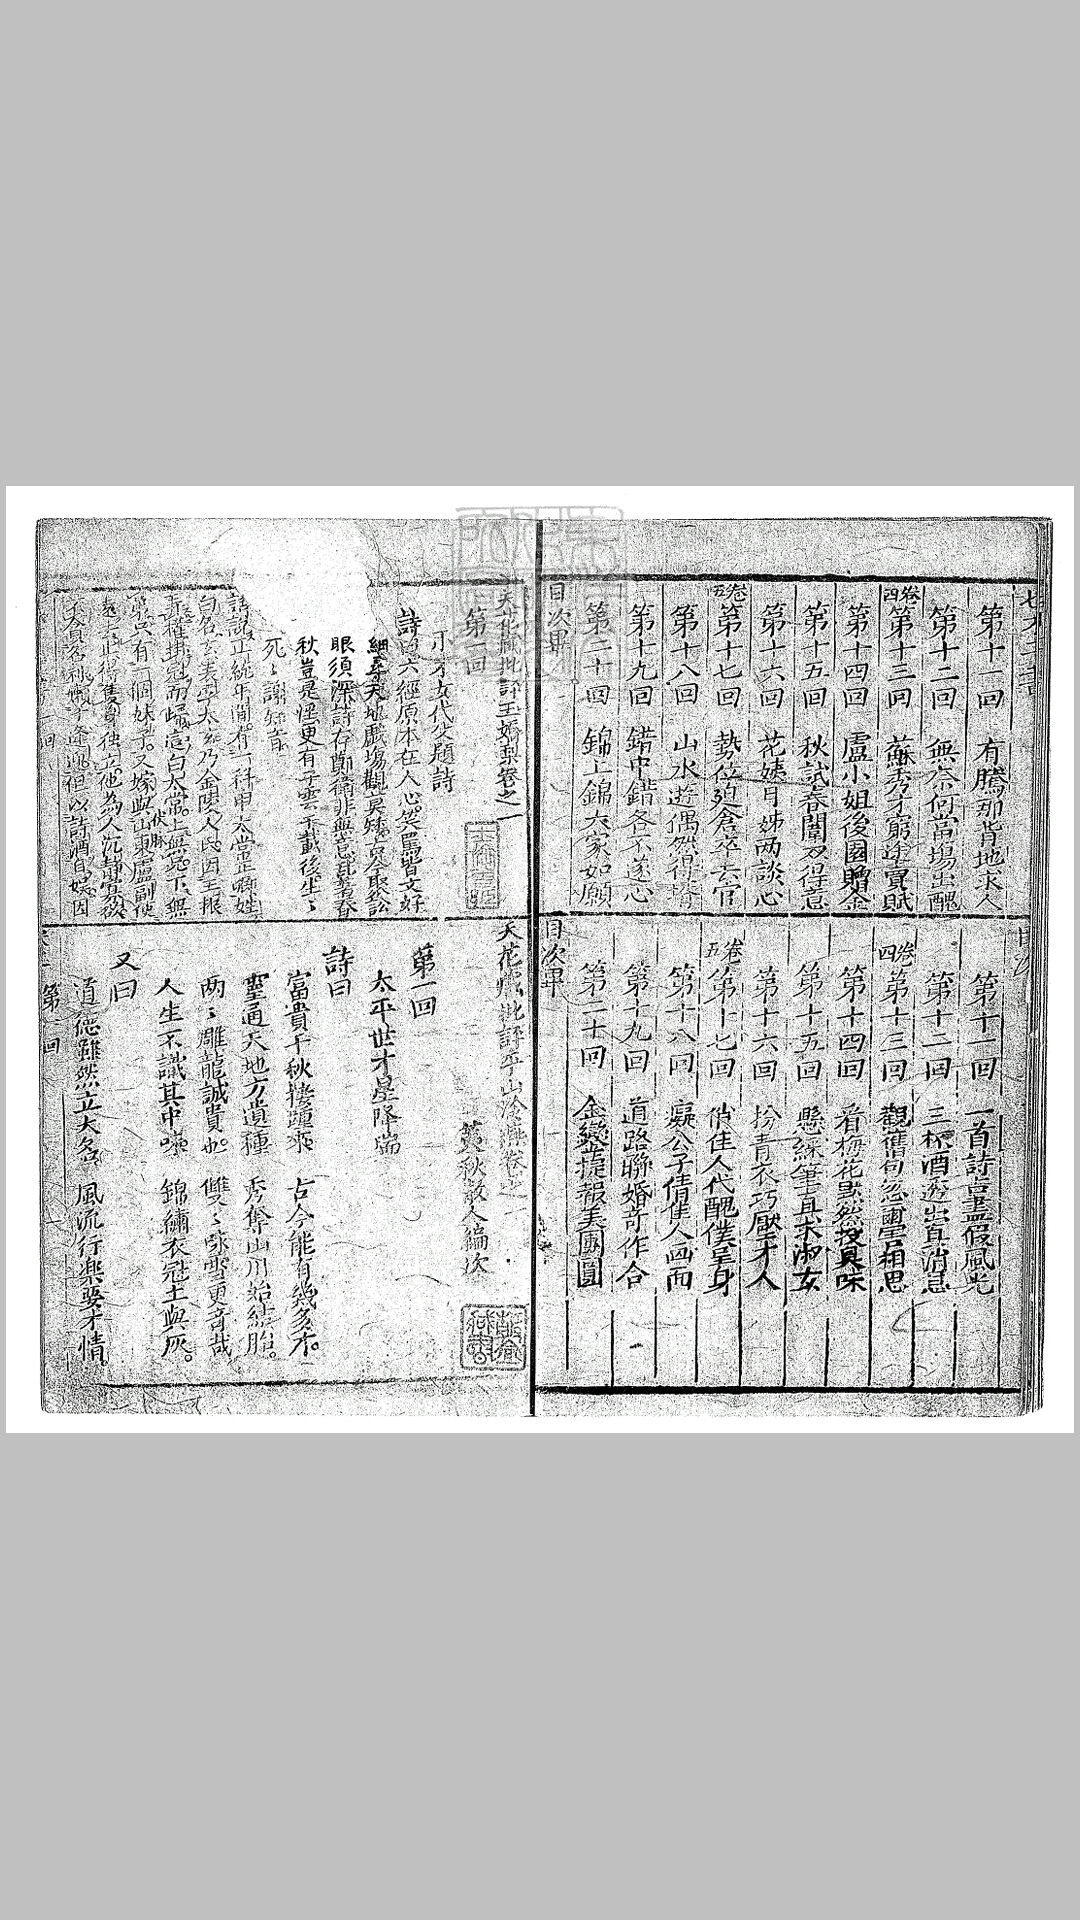 第十一回 有騰那背地求人
第十二回 無奈何當場出醜
卷四
第十三回 蘇秀才窮途賣賦
第十四回 盧小姐後園贈金
第十五回 秋試春闈双得意
第十六回 花姨月姊两談心
卷五
第十七回 勢位逼倉卒去官
第十八回 山水遊偶然得婿
第十九回 錯中錯各不遂心
第二十回 錦上錦大家如願
目次畢
第十一回 一首詩占盡假風光
第十二回 三杯酒逗出眞消息
卷四
第十三回 觀舊句忽爾害相思
第十四回 看梅花默然投臭味
第十五回 懸綵筆直求淑女
第十六回 扮青衣巧壓才人
卷五
第十七回 俏佳人代醜僕呈身
第十八回 癡公子倩佳人画面
第十九回 道路聯婚奇作合
第二十回 金鑾報美團圓
目次畢
天花藏批評玉嬌梨卷之一
第一回
小才女代父題詩
詩曰六經原本在人心笑罵皆文好
細尋天地戲塲觀莫矮古今聚訟
眼須深詩存鄭衛非無意亂著春
秋豈是淫更有子雲千載後生〻
死〻謝知音
話說正統年間有一科甲太常正卿姓
白名玄表字太玄乃金陵人氏因王振
弄權掛冠而歸這白太常上無兄下無
弟只有一個妹子又嫁與山東盧副使
遠去止得隻身独立他為人沉靜寡欲
伏脉
天花藏批評平山冷燕卷之一
荑秋散人編次
第一回
太平世才星降瑞
詩曰
富貴千秋接踵來 古今能有幾多才。
聖通天地方遺種 秀奪山川始結胎。
两〻雕龍誠貴也。 雙〻咏雪更奇哉
人生不識其中味 錦繡衣冠土與灰。
又曰
道德雖然立大名 風流行樂要才情。
第一回